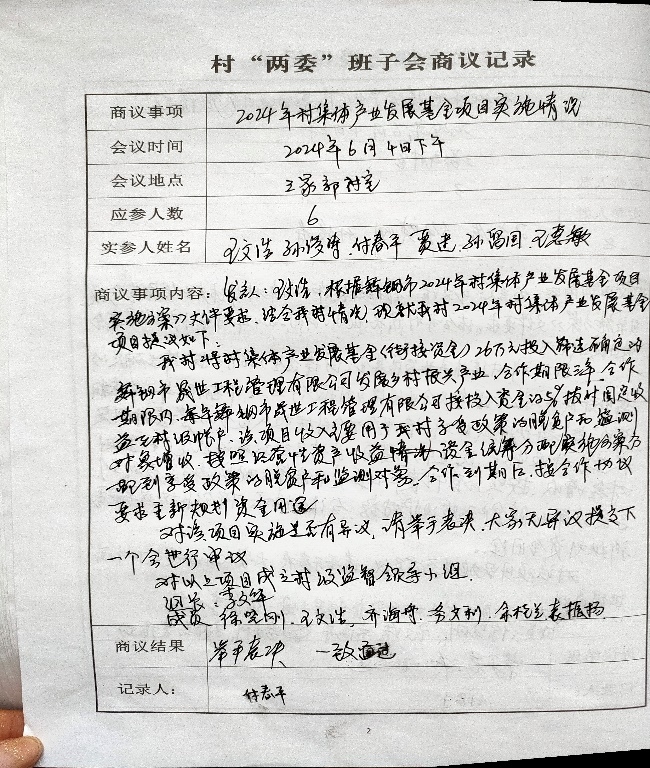 村“两委”班子会商议记录
商议事项 2024年村集体产业发展基金项目实施情况
会议时间 2024年6月4日下午
会议地点 王家郭村室
应参人数 6
实参人姓名 王文浩 孙俊涛 付春平 贾进 孙留国 王惠敏
商议事项内容: 发言人:王文浩,根据舞钢市2024年村集体产业发展基金项目
实施方案》文件要求,结合我村情况,现就我村2024年村集体产业发展基金
项目提议如下:
我村将村集体产业发展基金(衔接资金)26万元投入筛选确定的
舞钢市晟世工程管理有限公司发展乡村振兴产业,合作期限三年,合作
期限内,每年舞钢市晟世工程管理有限公司按投入资金的5%拨付固定收
益至村级账户,该项目收入主要用于我村享受政策的脱贫户和监测
对象增收,按照经营性资产收益 资金统筹分配实施方案分
配到享受政策的脱贫户和监测对象,合作到期后,按合作协议
要求重新规划资金用途
对该项目实施是否有异议,请举手表决,大家无异议提交下
一个会进行审议
对以上项目成立村级监督领导小组.
组长:李文军
成员 徐晓刚,王文浩,齐海舟,务文利,余松兰 袁振杨
商议结果 举手表决 一致通过
记录人: 付春平
2